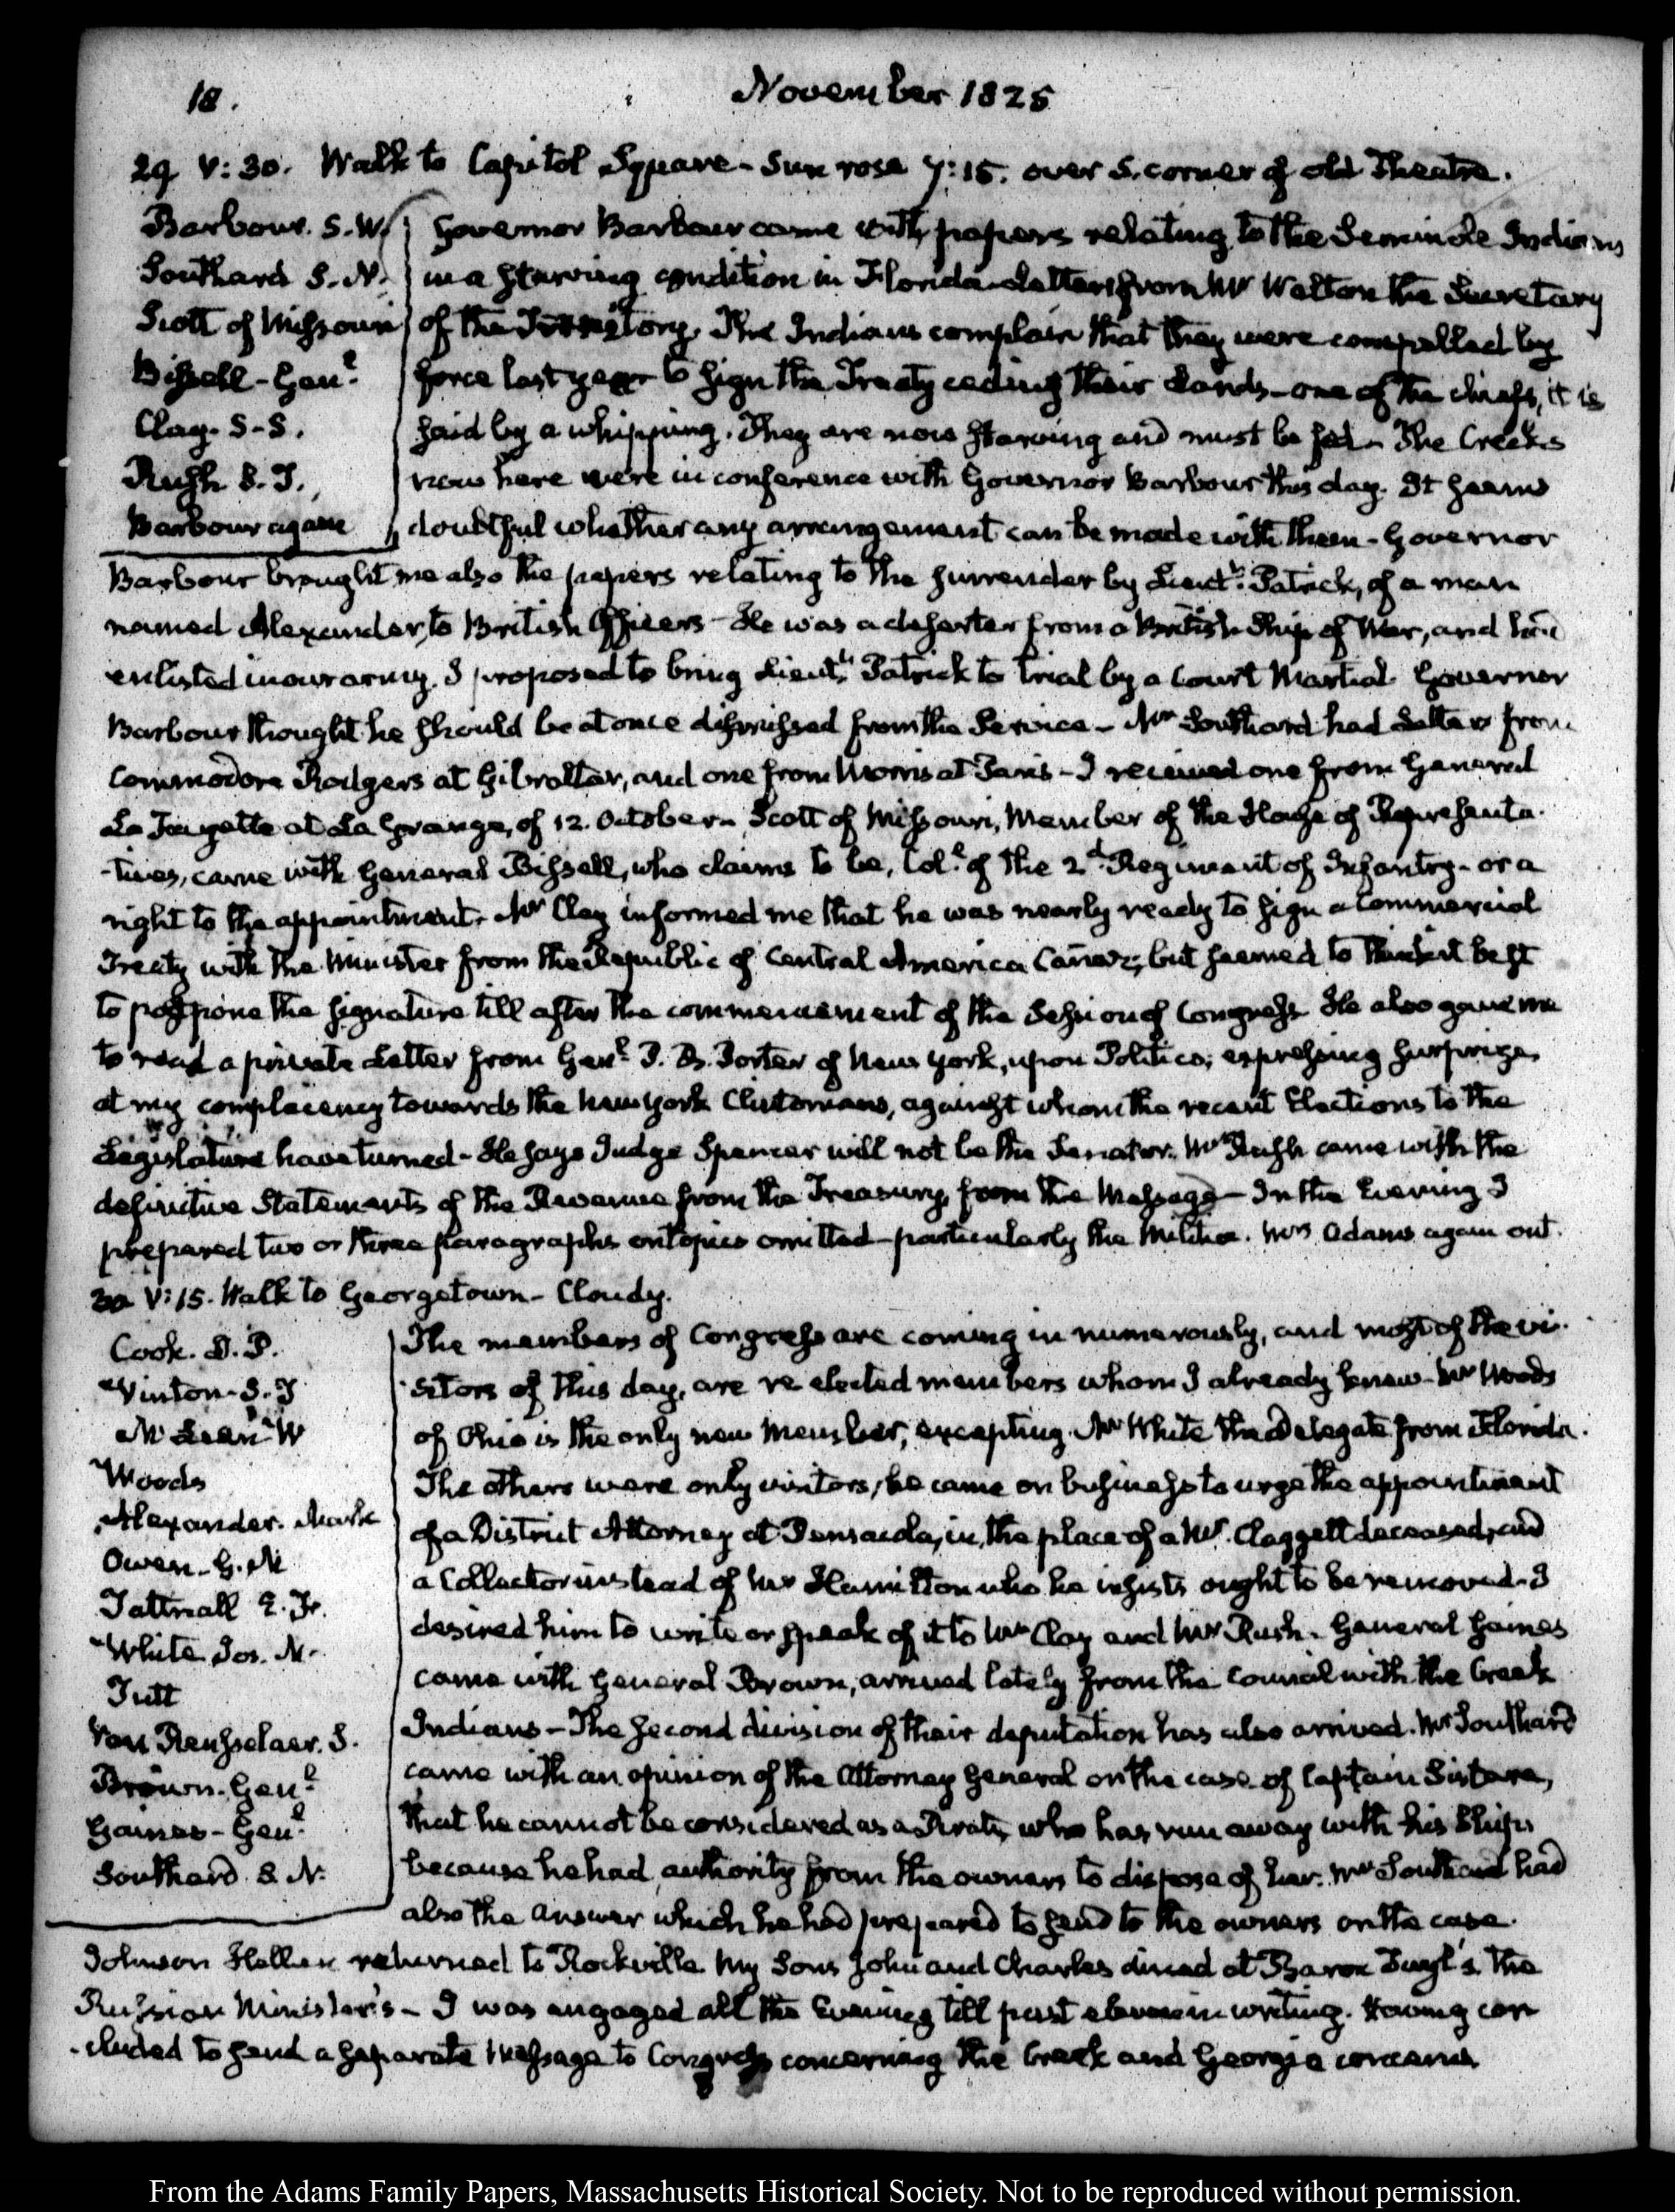 18.
November 1825
29. V:30. Walk to Capitol Square - Sun rose 7:15. over S. corner of old Theatre.
Barbour. S.W.
Southard S.N.
Scott of Missouri
Bissell - Genl.
Clay. S.S.
Rush S.T.
Barbour again
Governor Barbour came with papers relating to the Seminole Indians
in a starving condition in Florida - Letters from Mr Walton the Secretary
of the Territory. The Indians complain that they were compelled by
force last year to sign the Treaty ceding their Lands - one of the chiefs, it is
said by a whipping. They are now starving and must be fed - The Creeks
now here were in conference with Governor Barbour this day. It seems
doubtful whether any arrangement can be made with them - Governor
Barbour brought me also the papers relating to the surrender by Lieutt. Patrick, of a man
named Alexander, to British Officers - He was a deserter from a British Ship of War, and had
enlisted in our army. I proposed to bring Lieutt. Patrick to trial by a Court Martial. Governor
Barbour thought he should be at once dismissed from the Service - Mr Southard had Letters from
Commodore Rodgers at Gibraltar, and one from Morris at Paris - I received one from General
La Fayette at La Grange, of 12. October - Scott of Missouri, Member of the House of Representa-
-tives, came with General Bissell, who claims to be, Coll. of the 2d. Regiment of Infantry - or a
right to the appointment. Mr Clay informed me that he was nearly ready to sign a Commercial
Treaty with the Minister from the Republic of Central America Cañaz; but seemed to think it best
to postpone the signature till after the commencement of the Session of Congress. He also gave me
to read a private Letter from Genl. P. B. Porter of New York, upon Politics; expressing surprize
at my complacency towards the New York Clintonians, against whom the recent Elections to the
Legislature have turned - He says Judge Spencer will not be the Senator. Mr Rush came with the
definitive Statements of the Revenue from the Treasury, from the Message - In the Evening I
prepared two or three paragraphs on topics omitted - particularly the Militia. Mrs Adams again out.
30. V:15. Walk to Georgetown - Cloudy.
Cook. D.P.
Vinton - S.F
McLean - W
Woods
Alexander. Mark
Owen - G. W
Tattnall E. Fr.
White Jos. M.
Tutt
Van Rensselaer. S.
Brown - Genl.
Gaines - Genl.
Southard S.N.
The members of Congress are coming in numerously, and most of the vi-
-sitors of this day, are re elected members whom I already knew - Mr Woods
of Ohio is the only new Member, excepting Mr White the Delegate from Florida.
The others were only visitors; he came on business to urge the appointment
of a District Attorney at Pensacola, in the place of a Mr. Claggett deceased; and
a Collector instead of Mr Hamilton who he insists ought to be removed - I
desired him to write or speak of it to Mr Clay and Mr Rush - General Gaines
came with General Brown, arrived lately from the Council with the Creek
Indians - The second division of their deputation has also arrived. Mr Southard
came with an opinion of the Attorney General on the case of Captain Sistare,
that he cannot be considered as a Pirate, who has run away with his Ship
because he had authority from the owners to dispose of her. Mr Southard had
also the answer which he had prepared to send to the owners on the case.
Johnson Hellen returned to Rockville. My Sons John and Charles dined at Baron Tuyl's. the
Russian Minister's - I was engaged all the Evening till past eleven in writing. Having con-
-cluded to send a separate Message to Congress concerning the Creek and Georgia concerns
From the Adams Family Papers, Massachusetts Historical Society. Not to be reproduced without permission.